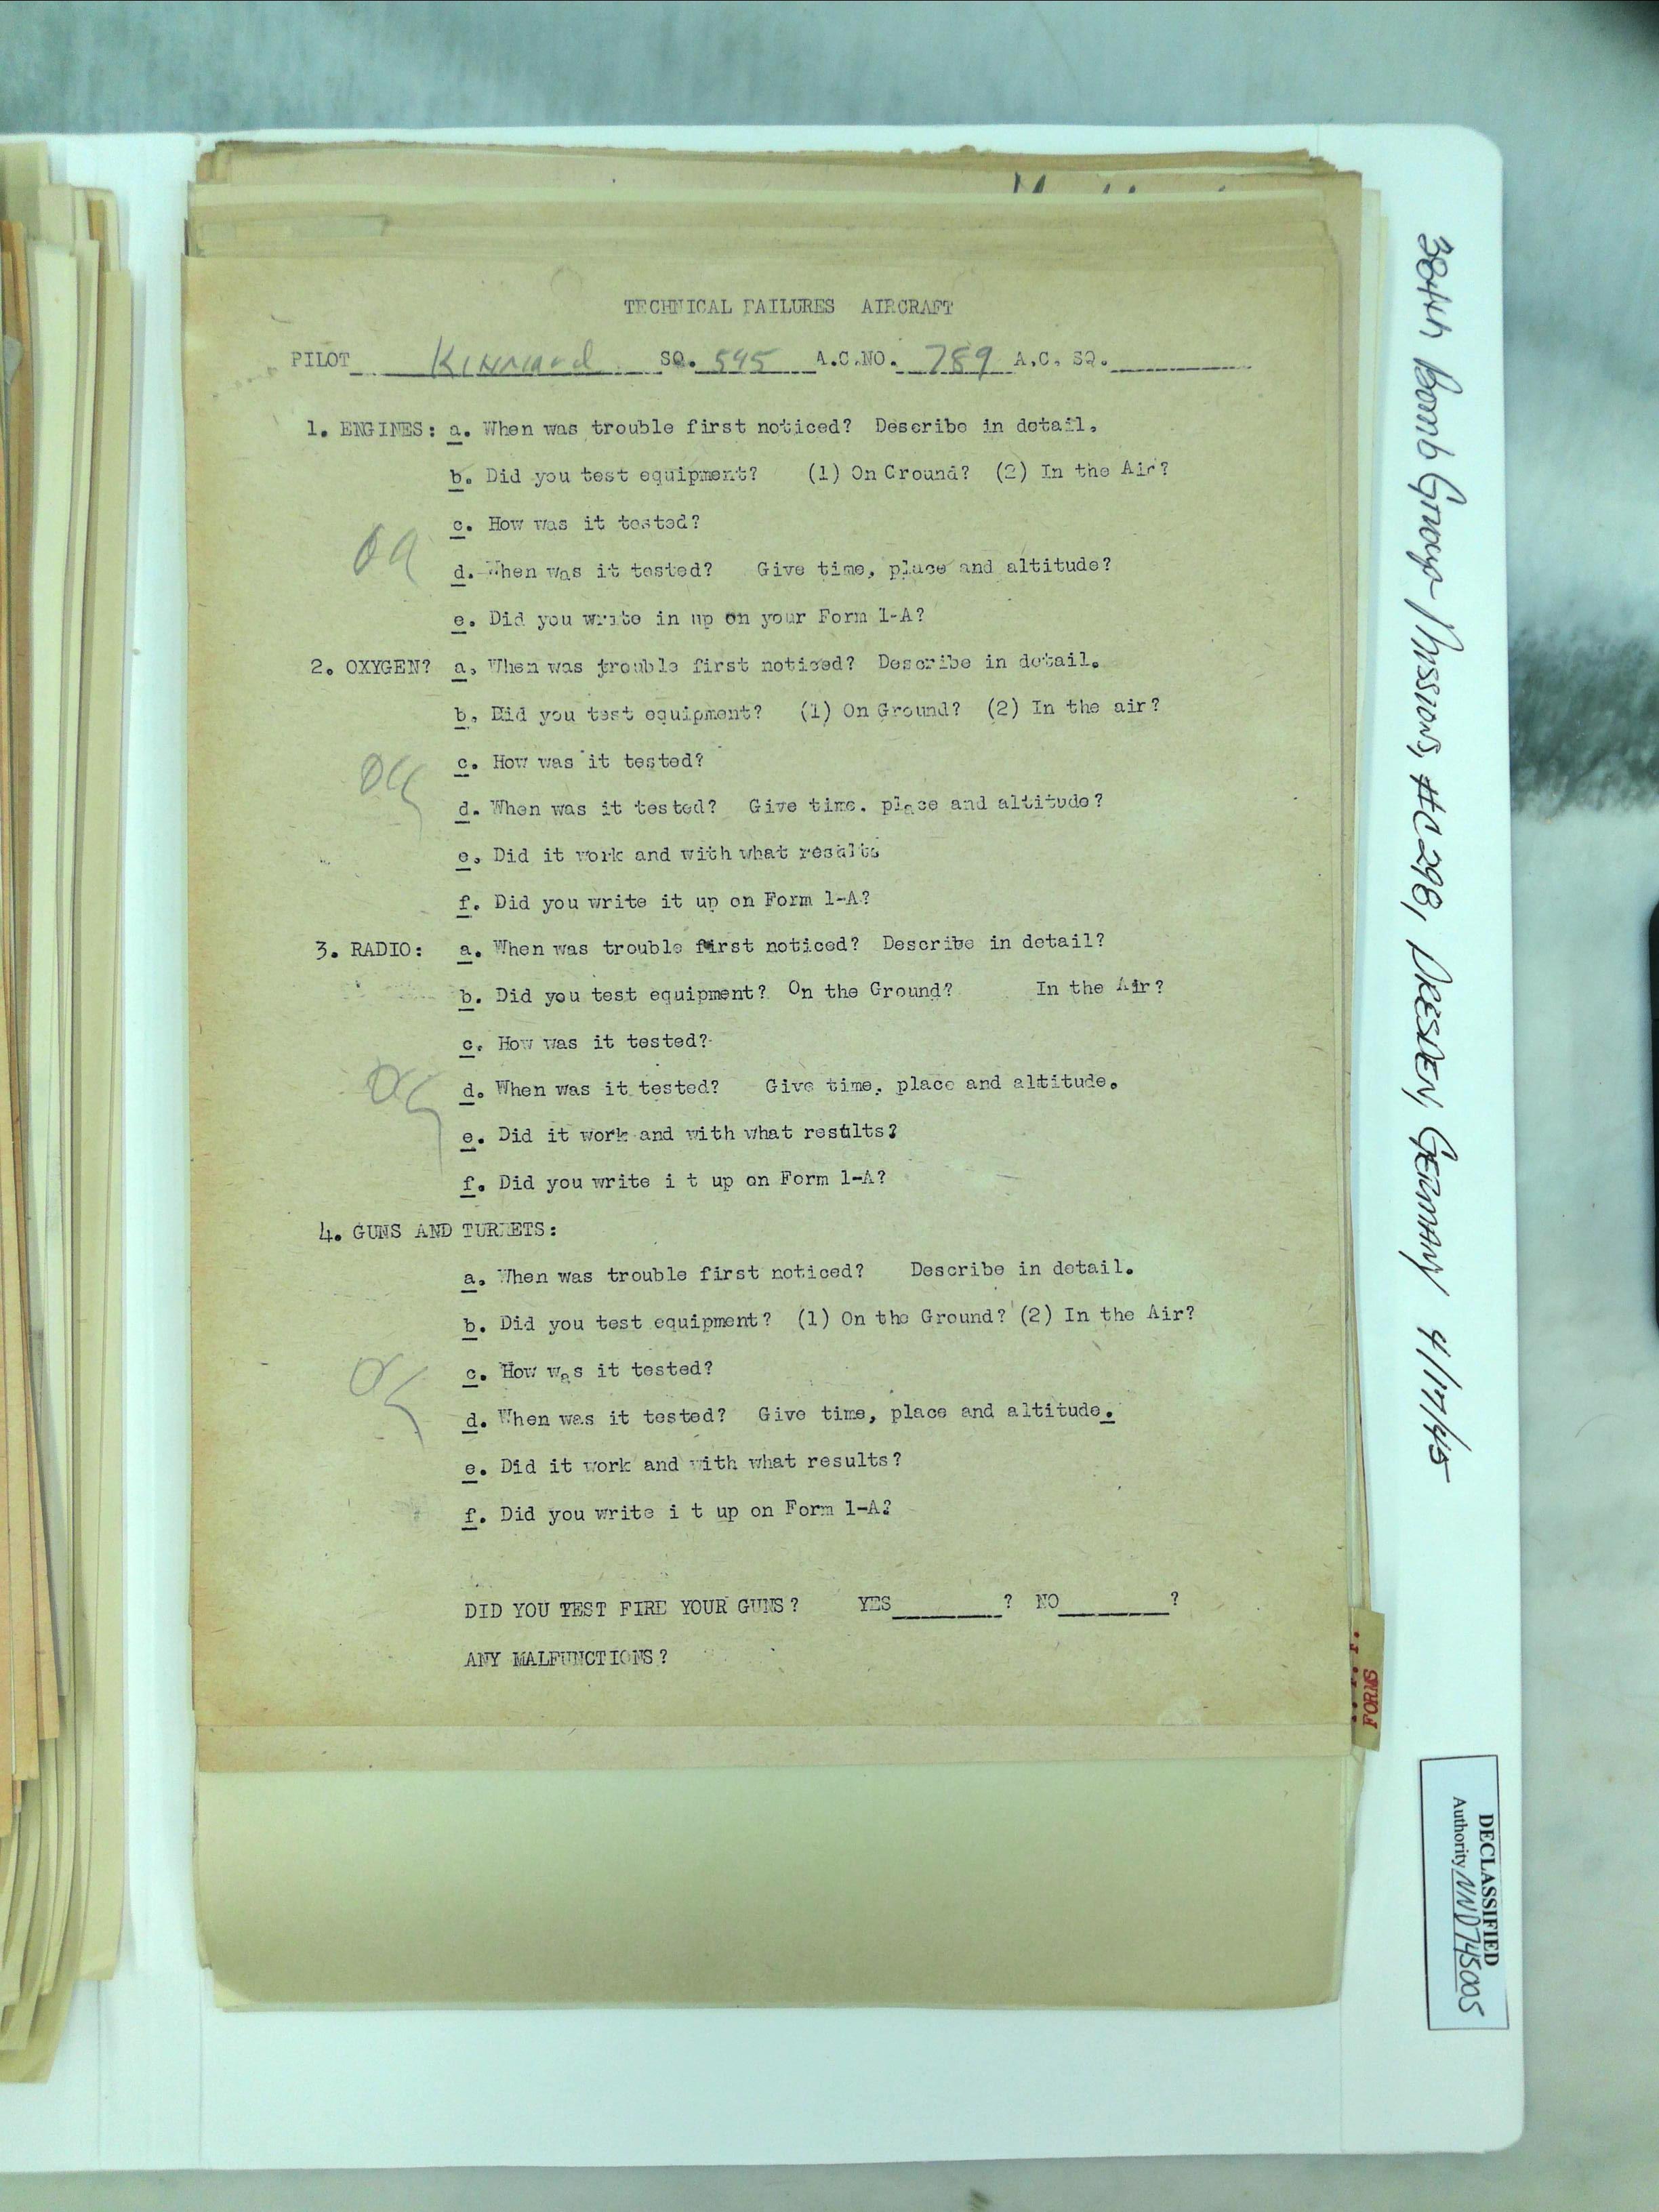 TECHNICAL FAILURES AIRCRAFT
PILOT Kinnard SQ. 545 A.C.NO. 789 A.C. SQ.
1. ENGINES: a. When was trouble first noticed? Describe in detail.
b. Did you test equipment? (1) On Ground? (2) In the Air?
c. How was it tested?
d. When was it tested? Give time, place and altitude?
e. Did you write in up on your Form 1-A?
2. OXYGEN? a. When was trouble first noticed? Describe in detail.
b. Did you test equipment? (1) On Ground? (2) In the air?
c. How was it tested?
d. When was it tested? Give time. place and altitude?
e. Did it work and with what results
f. Did you write it up on Form 1-A?
3. RADIO: a. When was trouble first noticed? Describe in detail?
b. Did you test equipment? On the Ground? In the Air?
c. How was it tested?
d. When was it tested? Give time, place and altitude.
e. Did it work and with what results?
f. Did you write i t up on Form 1-A?
4. GUNS AND TURRETS:
a. When was trouble first noticed? Describe in detail.
b. Did you test equipment? (1) On the Ground? (2) In the Air?
c. How was it tested?
d. When was it tested? Give time, place and altitude.
e. Did it work and with what results?
f. Did you write i t up on Form 1-A?
DID YOU TEST FIRE YOUR GUNS? YES ? NO ?
ANY MALFUNCTIONS?
FORMS
384th Bomb Group Missions, #C298, DRESDEN, GERMANY 4/17/45
DECLASSIFIED
Authority NND745005